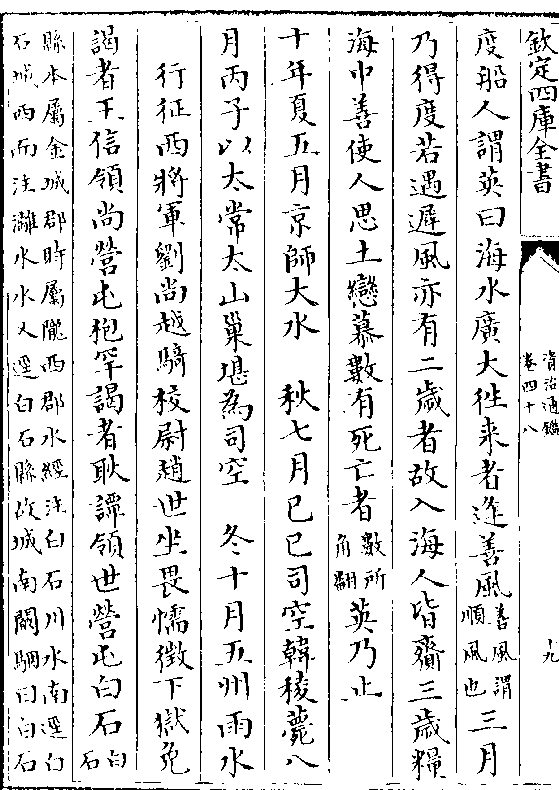 欽定四庫全書
資治通鑑
卷四十八
十九
度船人謂英曰海水廣大往来者逢善風善風謂順風也三月
乃得度若遇遲風亦有二歲者故入海人皆齎三歲糧
海中善使人思土戀慕數有死亡者數所角翻英乃止
十年夏五月京師大水　秋七月己巳司空韓稜薨八
月丙子以太常太山巢堪為司空　冬十月五州雨水
行征西將軍劉尚越騎校尉趙世坐畏懦徵下獄免
謁者王信領尚營屯枹罕謁者耿譚領世營屯白石白石
縣本屬金城郡時屬隴西郡水經注白石川水南逕白
石城西而注灕水水又逕白石縣故城南闞駰曰白石